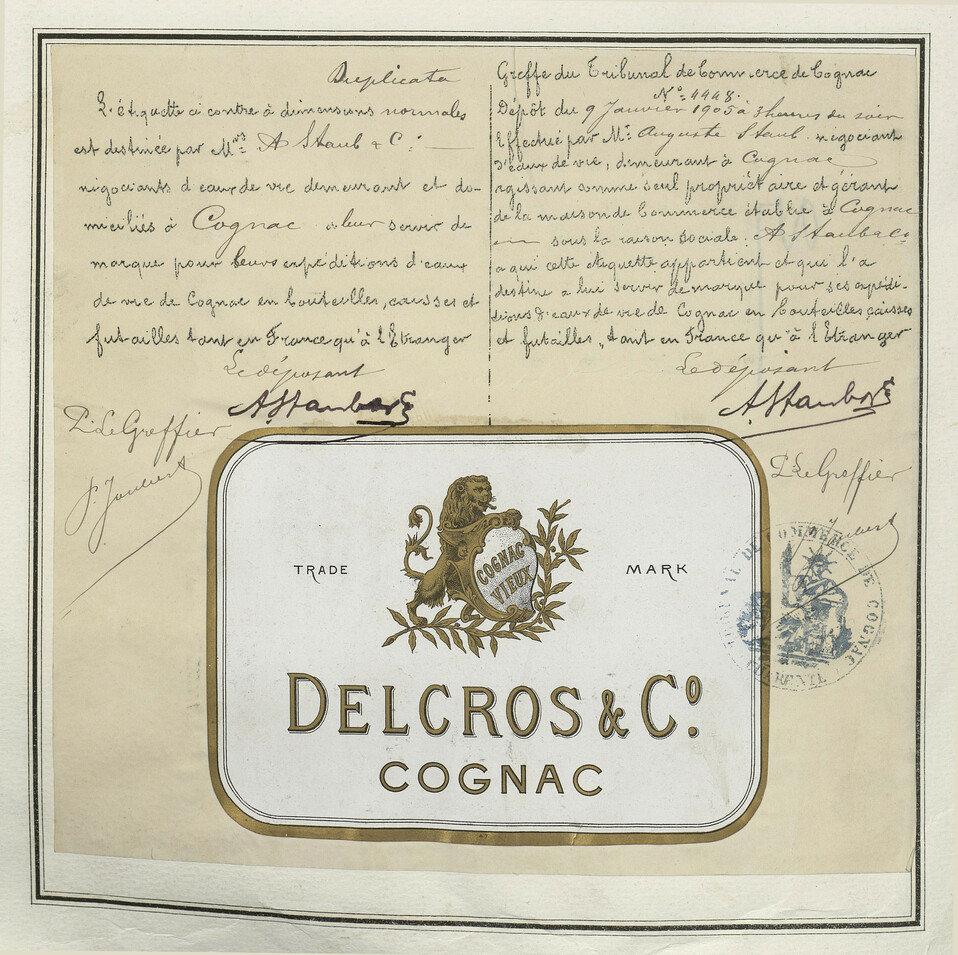 Duplicata
L'étiquette ci contre à dimensions normales
est destinée par Mrs A Staub & Cie
négociants d'eaux de vie demeurant et do-
miciliés à Cognac a leur servir de
marque pour leurs expéditions d'eaux
de vie de Cognac en bouteilles, caisses et
futailles tant en France qu'à l'Etranger
Le déposant
A Staub & Co
P. Le Greffier
Greffe du Tribunal de Commerce de Cognac
No. 4448.
Dépôt du 9 Janvier 1905 à 3 heures du soir
Effectué par Mr. Auguste Staub négociant
d'eaux de vie, demeurant à Cognac
agissant comme seul propriétaire et gérant
de la maison de Commerce établie à Cognac
sous la raison sociale: A Staub & Co
a qui cette étiquette appartient et qui l'a
destine a lui servir de marque pour ses expédi-
tions d'eaux de vie de Cognac en bouteilles, caisses
et futailles, tant en France qu'à l'Etranger
Le déposant
A Staub & Co
P. Le Greffier
TRIBUNAL DE COMMERCE DE COGNAC
TRADE MARK
COGNAC
VIEUX
DELCROS & Co.
COGNAC